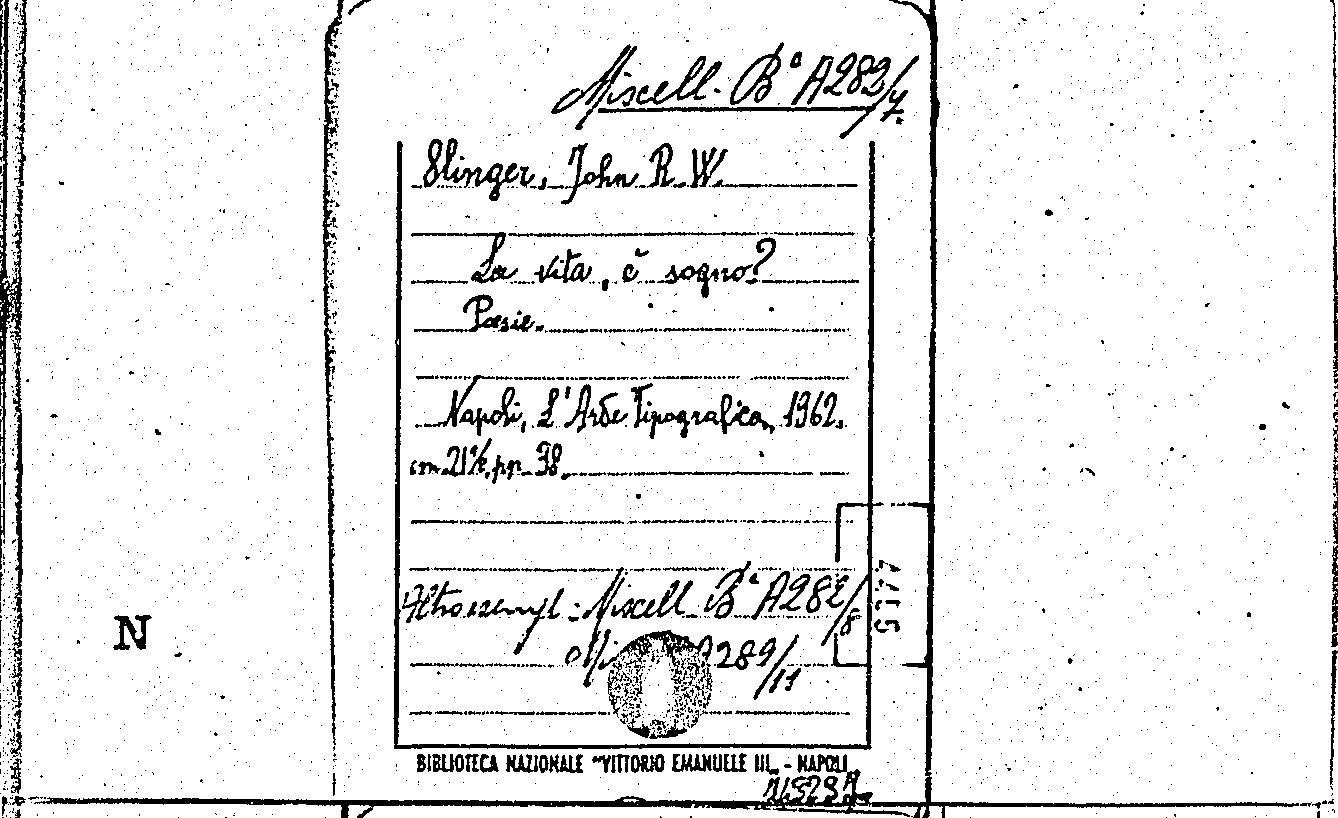 Miscell. Bª A282/7.
Slinger, John R. W.
La vita, è sogno?
Poesie.
Napoli, L'Arte Tipografica, 1962.
cm. 21½, pp. 38.
Altro esempl. Miscell. Bª A282/8
A289/11
N
BIBLIOTECA NAZIONALE "VITTORIO EMANUELE III„ - NAPOLI